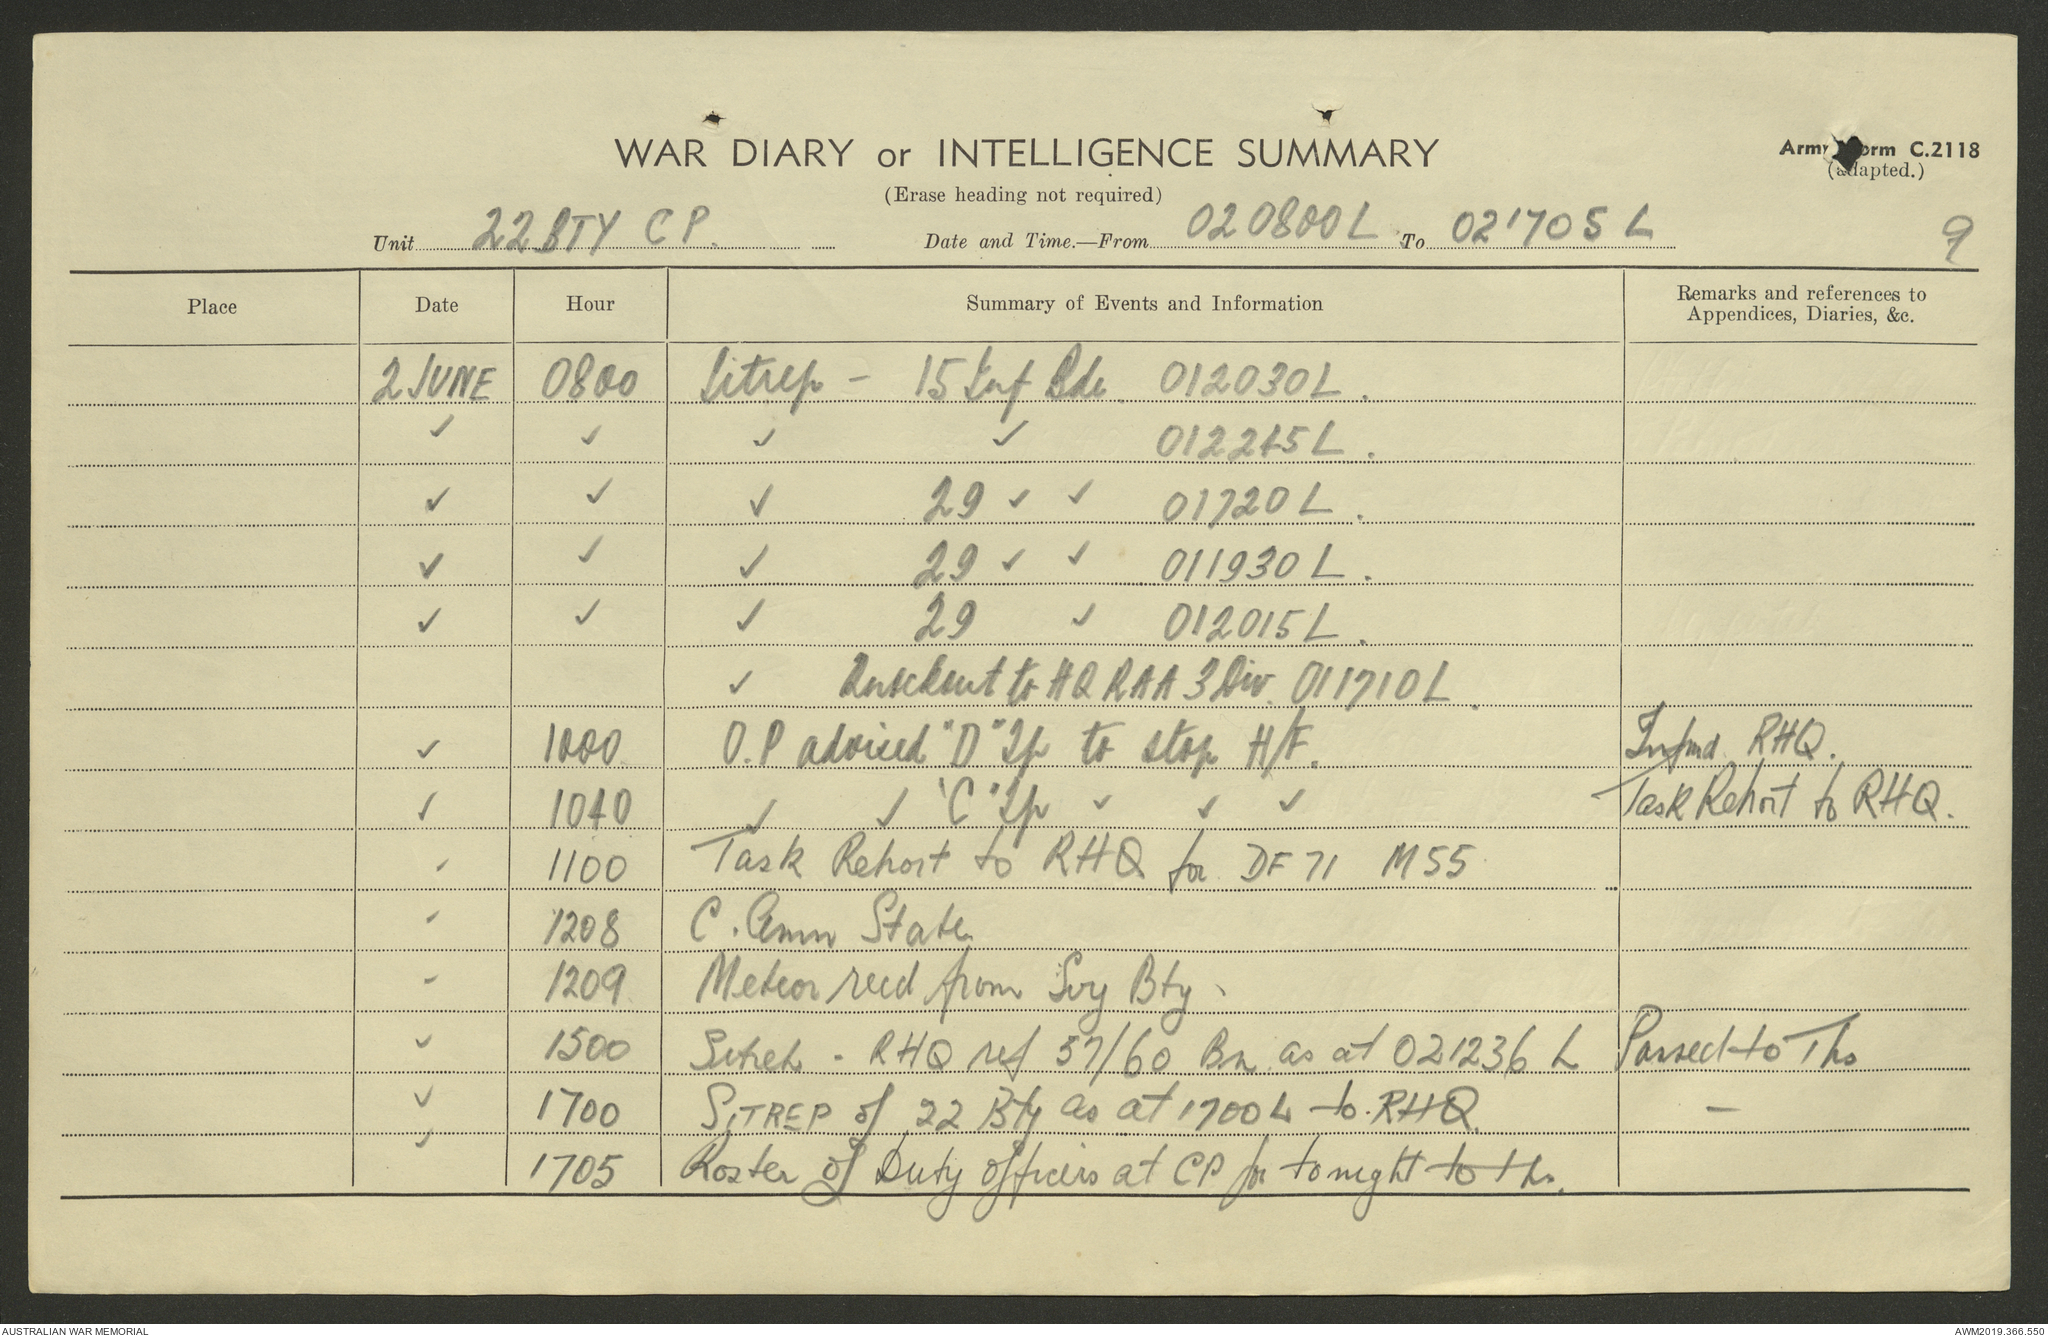 WAR DIARY or INTELLIGENCE SUMMARY
Army Form C.2118
(adapted.)
(Erase heading not required)
Unit 22 BTY CP. Date and Time.—From 020800L To 021705L
9
Place Date Hour Summary of Events and Information Remarks and references to Appendices, Diaries, &c.
2 JUNE 0800 Sitrep - 15 Inf Bde. 012030L.
✓ ✓ ✓ ✓ 012245L.
✓ ✓ ✓ 29 ✓ ✓ 01720L.
✓ ✓ ✓ 29 ✓ ✓ 011930L.
✓ ✓ ✓ 29 ✓ 012015L.
✓ to HQ RAA 3 Div. 011710L.
✓ 1000 O.P advised "D" Tp to stop H/F. Infmd. RHQ.
✓ 1040 ✓ ✓ "C" Tp ✓ ✓ ✓ Task Report to RHQ.
✓ 1100 Task Report to RHQ for DF 71 M55
✓ 1208 C. Amn State
- 1209 Meteor recd from Svy Bty.
✓ 1500 Sitrep - RHQ ref 57/60 Bn as at 021236 L Passed to Tps
✓ 1700 SITREP of 22 Bty as at 1700L to RHQ. -
✓ 1705 Roster of Duty officers at CP for tonight to Tps.
AUSTRALIAN WAR MEMORIAL
AWM2019.366.550